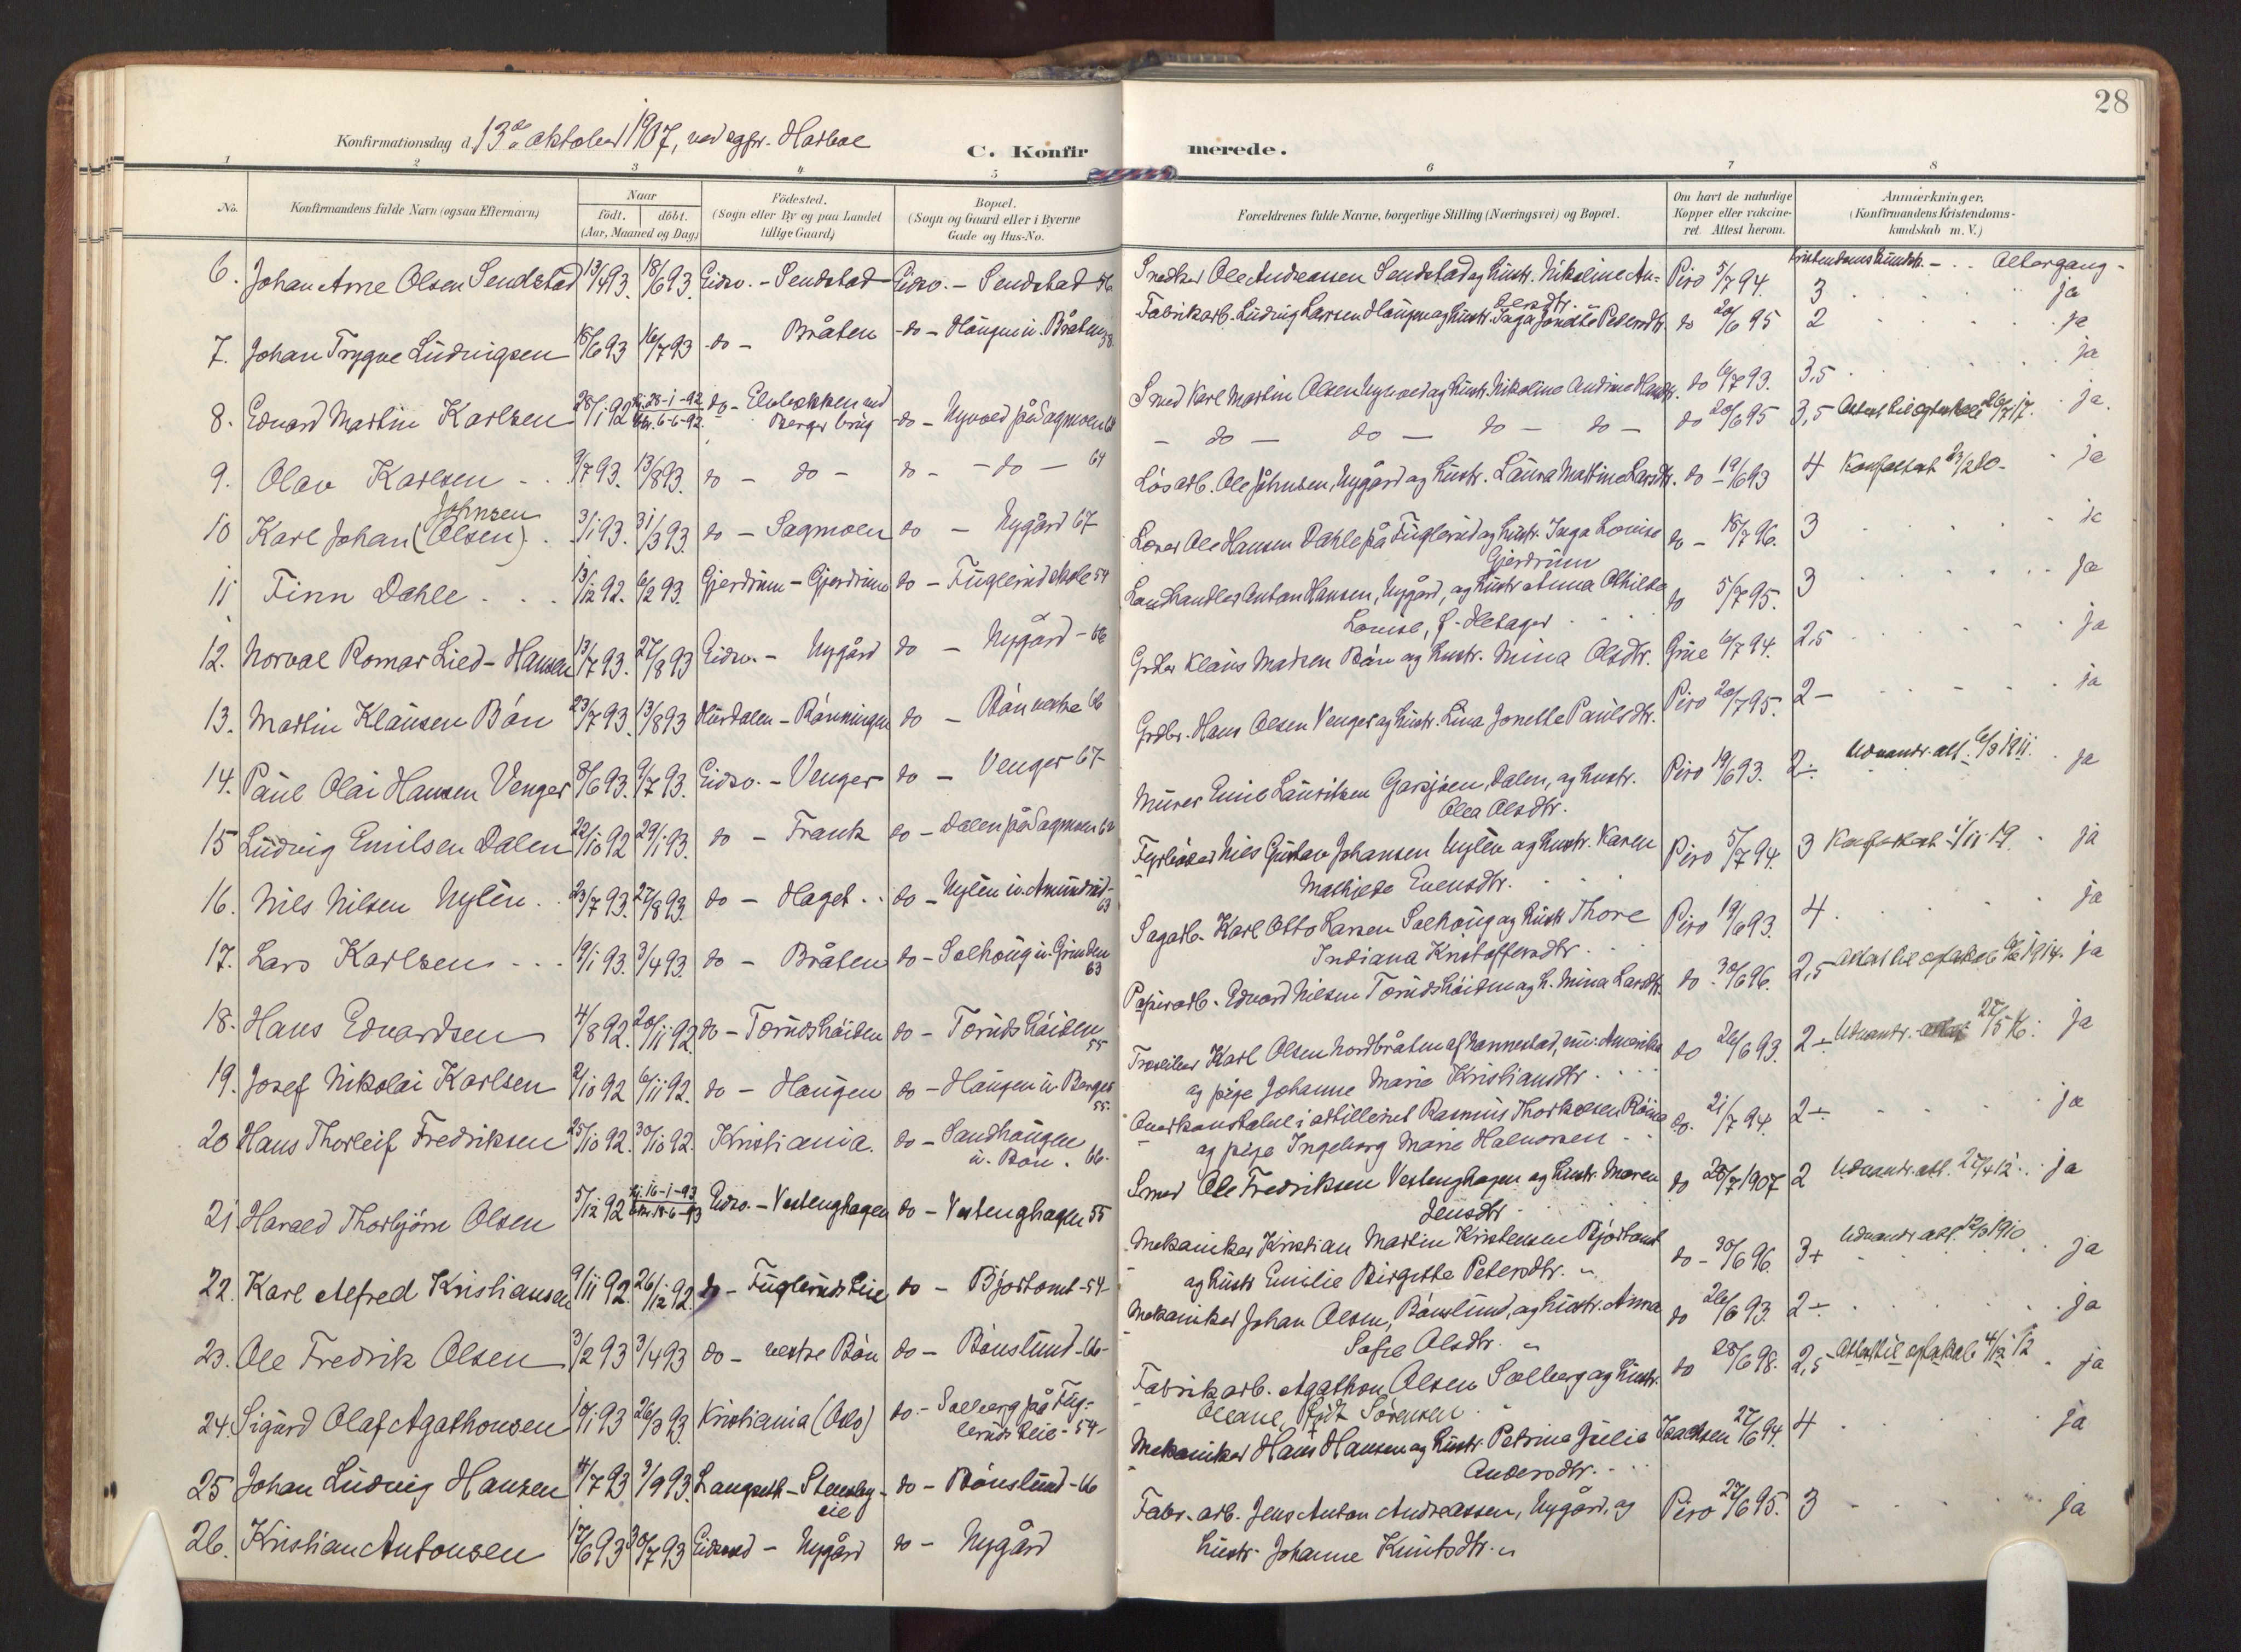 28
Konfirmationsdag d. 13de oktober 1907, ved sgpr. Harboe
C. Konfirmerede.
1 2 3 4 5 6 7 8
No.
Konfirmandens fulde Navn (ogsaa Efternavn)
Naar
födt. döbt.
(Aar, Maaned og Dag)
Födested.
(Sogn eller By og paa Landet
tillige Gaard)
Bopæl.
(Sogn og Gaard eller i Byerne
Gade og Hus-No.
Forældrenes fulde Navne, borgerlige Stilling (Næringsvei) og Bopæl.
Om havt de naturlige
Kopper eller vakcine-
ret. Attest herom.
Anmærkninger.
(Konfirmandens Kristendoms-
kundskab m. V.)
Kristendomskundsk. - Altergang -
6. Johan Arne Olsen Sendstad 13/4 93. 18/6 93. Eidsv. - Sendstad Eidsv. - Sendstad 56 Snedker Ole Andreassen Sendstad og hustr. Nikoline An- Piro 5/7 94. 3 ja
dersdtr.
7. Johan Trygve Ludvigsen 18/6 93 16/7 93 do - Bråten do - Haugen u. Bråten 58. Fabrikarb. Ludvig Larsen Haugen og hustr. Inga Jonette Pedersdtr. do 20/6 95 2 ja
8. Edvard Martin Karlsen 28/1 92 hj. 28-1-92 6-6-92 do - Elvebakken ved Berger brug do - Nyvold på Sagmoen Smed Karl Martin Olsen Nyvold og hustr. Nikoline Andine Hansdtr. do 6/7 93. 3,5 ja
9. Olav Karlsen 9/7 93. 13/8 93. do - do - do - do - 64 - do - do - do - do - do 20/6 95 3,5 ja.
10 Karl Johan (Olsen) Johnsen 3/1 93. 31/3 93. do - Sagmoen do - Nygård 67 Lösarb. Ole Johnsen, Nygård og hustr. Laura Martine Larsdtr. do 19/6 93 4 ja
11 Finn Dahle 13/12 92. 6/2 93. Gjerdrum - Gjerdrum do - Fuglerud skole 54 Lærer Ole Hansen Dahle på Fuglerud og hustr. Inga Louise do - 18/7 96. 3 ja
Gjerdrum
12. Norval Romar Lied-Hansen 13/7 93. 27/8 93 Eidsv. - Nygård do - Nygård - 66 Landhandler Anton Hansen, Nygård, og hustr. Anna Othilde do 5/7 95. 3 ja
Louise, f. Hetager
13. Martin Klausen Bön 23/7 93. 13/8 93 Hurdalen - Rönningen do - Bön vestre 66 Grdbr Klaus Madsen Bön og hustr. Mina Olsdtr. Grue 6/7 94. 2,5 ja
14. Paul Olai Hansen Venger 8/6 93. 9/7 93. Eidsv. - Venger do - Venger 67 Grdbr. Hans Olsen Venger og hustr. Lina Jonette Paulsdtr. Piro 20/7 95. 2 - ja
15 Ludvig Emilsen Dalen 22/10 92 29/1 93. do - Frank do - Dalen på Sagmoen 62 Murer Emil Lauritsen Garsjöen, Dalen, og hustr. Piro 19/6 93. 2 ÷ Udvandr. att. 6/3 1911. ja
Olea Olsdtr.
16. Nils Nilsen Nylén 23/7 93. 27/8 93. do - Haget do - Nylén u. Amundrud 63 Fyrböter Nils Gustav Johansen Nylén og hustr. Karen Piro 5/7 94. 3 1/11 19. ja
Mathilde Evensdtr.
17. Lars Karlsen 19/1 93. 3/4 93. do - Bråten do - Solhaug u. Grinden 63 Sagarb. Karl Otto Larsen Solhaug og hustr Thore Piro 19/6 93. 4 ja
Indiana Kristoffersdtr.
18. Hans Edvardsen 4/8 92. 20/11 92. do - Tærudshöiden do - Tærudshöiden 55 Papirarb. Edvard Nilsen Tærudshöiden og h. Mina Larsdtr. do 30/6 96. 2,5 1914. ja
19. Josef Nikolai Karlsen 2/10 92 6/11 92. do - Haugen do - Haugen u. Berger 55. Træsliber Karl Olsen Nordbråten af Nannestad, nu: Amerika do 26/6 93. 2 ÷ Udvandr. 22/5 16. ja
og pige Johanne Marie Kristiansdtr.
20 Hans Thorleif Fredriksen 25/10 92. 30/10 92. Kristiania. do - Sandhaugen u. Bön. 66. Overkonstabel i artilleriet Rasmus Thorkelsen Röine do. 21/7 94. 2 ÷ ja
og pige Ingeborg Marie Halvorsen
21 Harald Thorbjörn Olsen 5/12 92 hj. 16-1-93 18-6-93 Eidsv. - Vestenghagen do - Vestenghagen 55 Smed Ole Fredriksen Vestenghagen og hustr. Maren do 28/7 1907 2 Udvandr. att. 27/4 12. ja
Jensdtr.
22. Karl Alfred Kristiansen 9/11 92. 26/12 92. do - Fugleruds Eie do - Bjortomt - 54 - Mekaniker Kristian Martin Kristensen Bjortomt do - 30/6 96. 3+ Udvandr. att. 12/3 1910 ja
og hustr Emilie Birgitte Petersdtr.
23. Ole Fredrik Olsen 3/2 93 3/4 93 do - vestre Bön do - Bönslund - 66 - Mekaniker Johan Olsen, Bönslund, og hustr. Anna do 26/6 93. 2 ÷ ja
Sofie Olsdtr.
24. Sigurd Olaf Agathonsen 19/1 93 26/3 93. Kristiania (Oslo) do. - Solberg på Fug-
leruds Eie - 54 - Fabrikarb. Agathon Olsen Solberg og hustr. do 28/6 98. 2,5 4/12 12 ja
Oleane, född Sörensen
25 Johan Ludvig Hansen 4/7 93 3/9 93. Langseth - Stensby - eie do - Bönslund - 66 Mekaniker Hans Hansen og hustr. Petrine Julie Isachsen 27/6 94. 4 ja
Andersdtr.
26. Kristian Antonsen 17/6 93 30/7 93 Eidsvold - Nygård do - Nygård Fabr. arb. Jens Anton Andreassen, Nygård, og Piro 27/6 95. 3 ja
hustr. Johanne Knutsdtr.